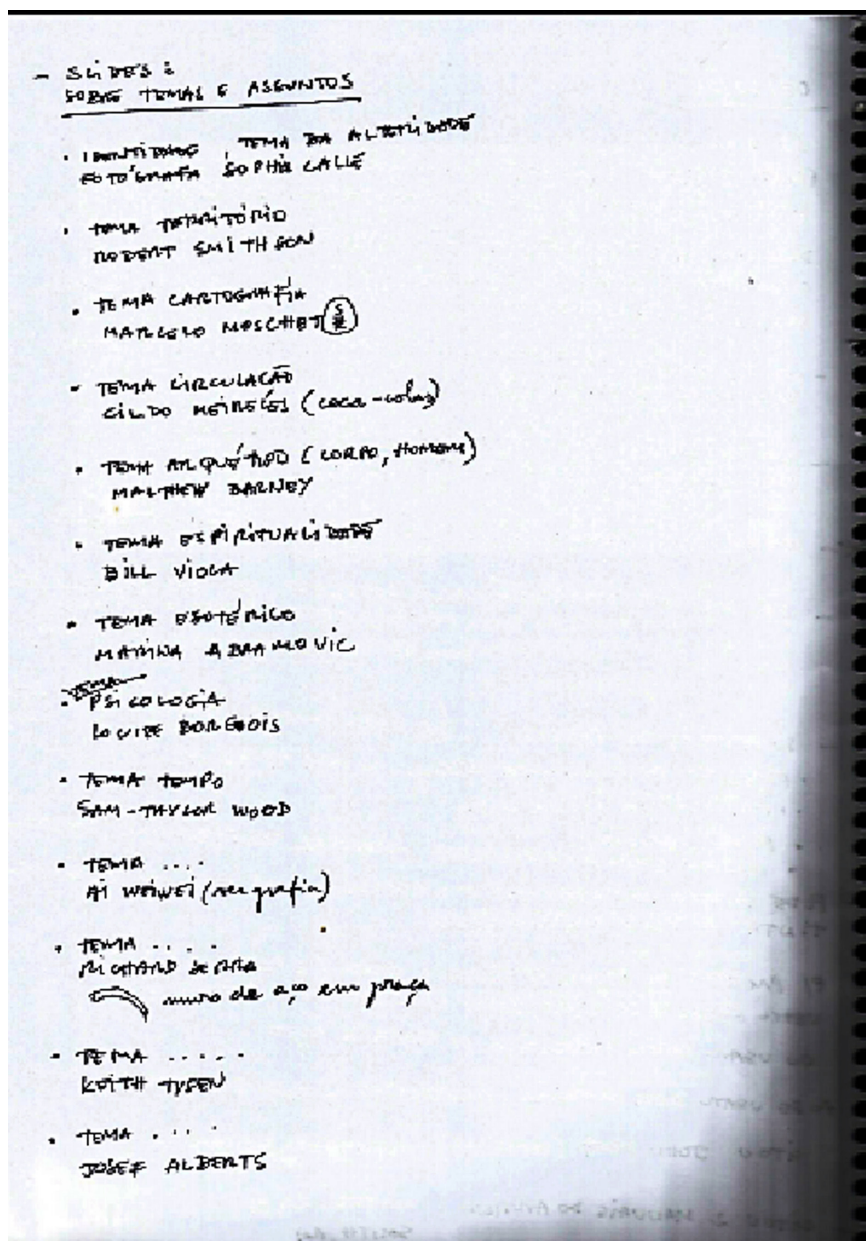 - SLIDES:
SOBRE TEMAS E ASSUNTOS
• IDENTIDADE, TEMA DA ALTERIDADE
FOTÓGRAFA SOPHIE CALLE
• TEMA TERRITÓRIO
ROBERT SMITHSON
• TEMA CARTOGRAFIA
MARCELO MOSCHET
• TEMA CIRCULAÇÃO
CILDO MEIRELES (coca-colas)
• TEMA ARQUÉTIPO (CORPO, HOMEM)
MATTHEW BARNEY
• TEMA ESPIRITUALIDADE
BILL VIOLA
• TEMA ESOTÉRICO
MARINA ABRAMOVIC
• PSICOLOGIA
LOUISE BORGEOIS
• TEMA TEMPO
SAM-TAYLOR WOOD
• TEMA ....
AI WEIWEI (ver grafia)
• TEMA ....
RICHARD SERRA
muro de aço em praça
• TEMA .....
KEITH TYSEN
• TEMA ....
JOSEF ALBERTS